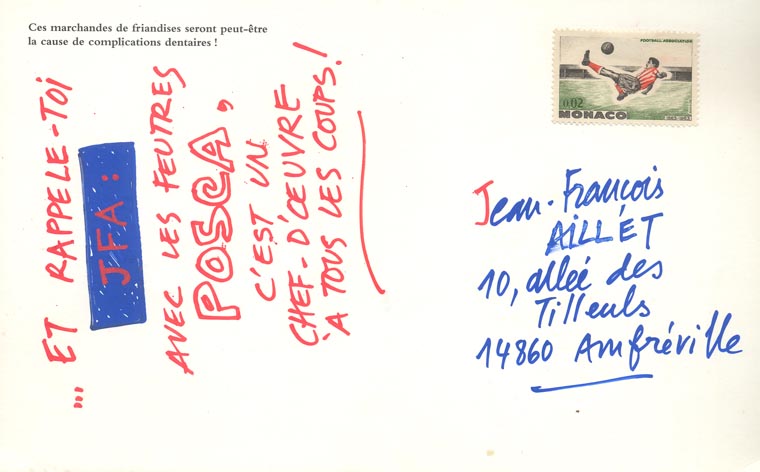 Ces marchandes de friandises seront peut-être
la cause de complications dentaires !
... ET RAPPELE-TOI
JFA :
AVEC LES FEUTRES
POSCA,
C'EST UN
CHEF-D'ŒUVRE
À TOUS LES COUPS !
FOOTBALL ASSOCIATION
0,02
MONACO
1863-1963
Jean-François
AILLET
10, allée des
Tilleuls
14860 Amfréville